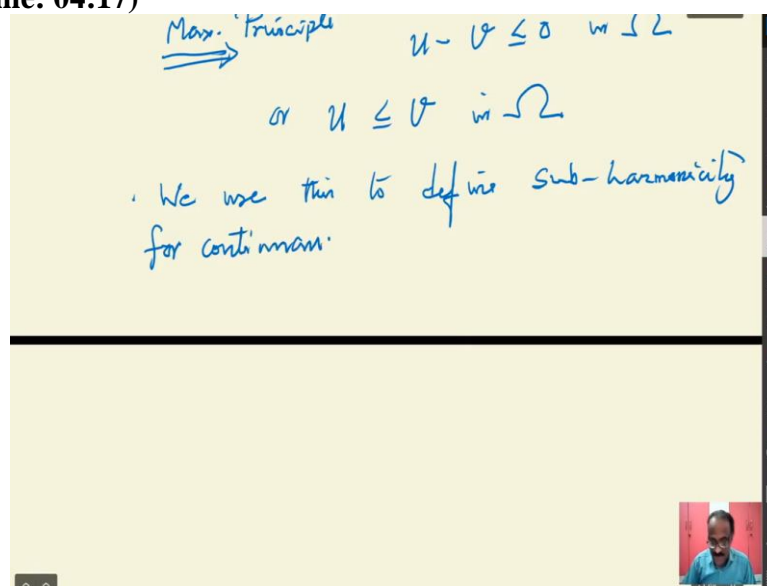 Max. Principle u - v ≤ 0 in Ω
or u ≤ v in Ω
. We use this to define sub-harmonicity
for continuous.